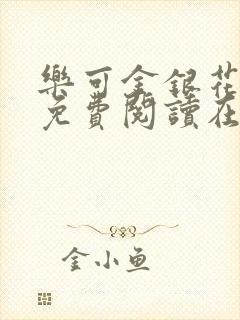 樂可金銀花
免費閱讀在
金小鱼